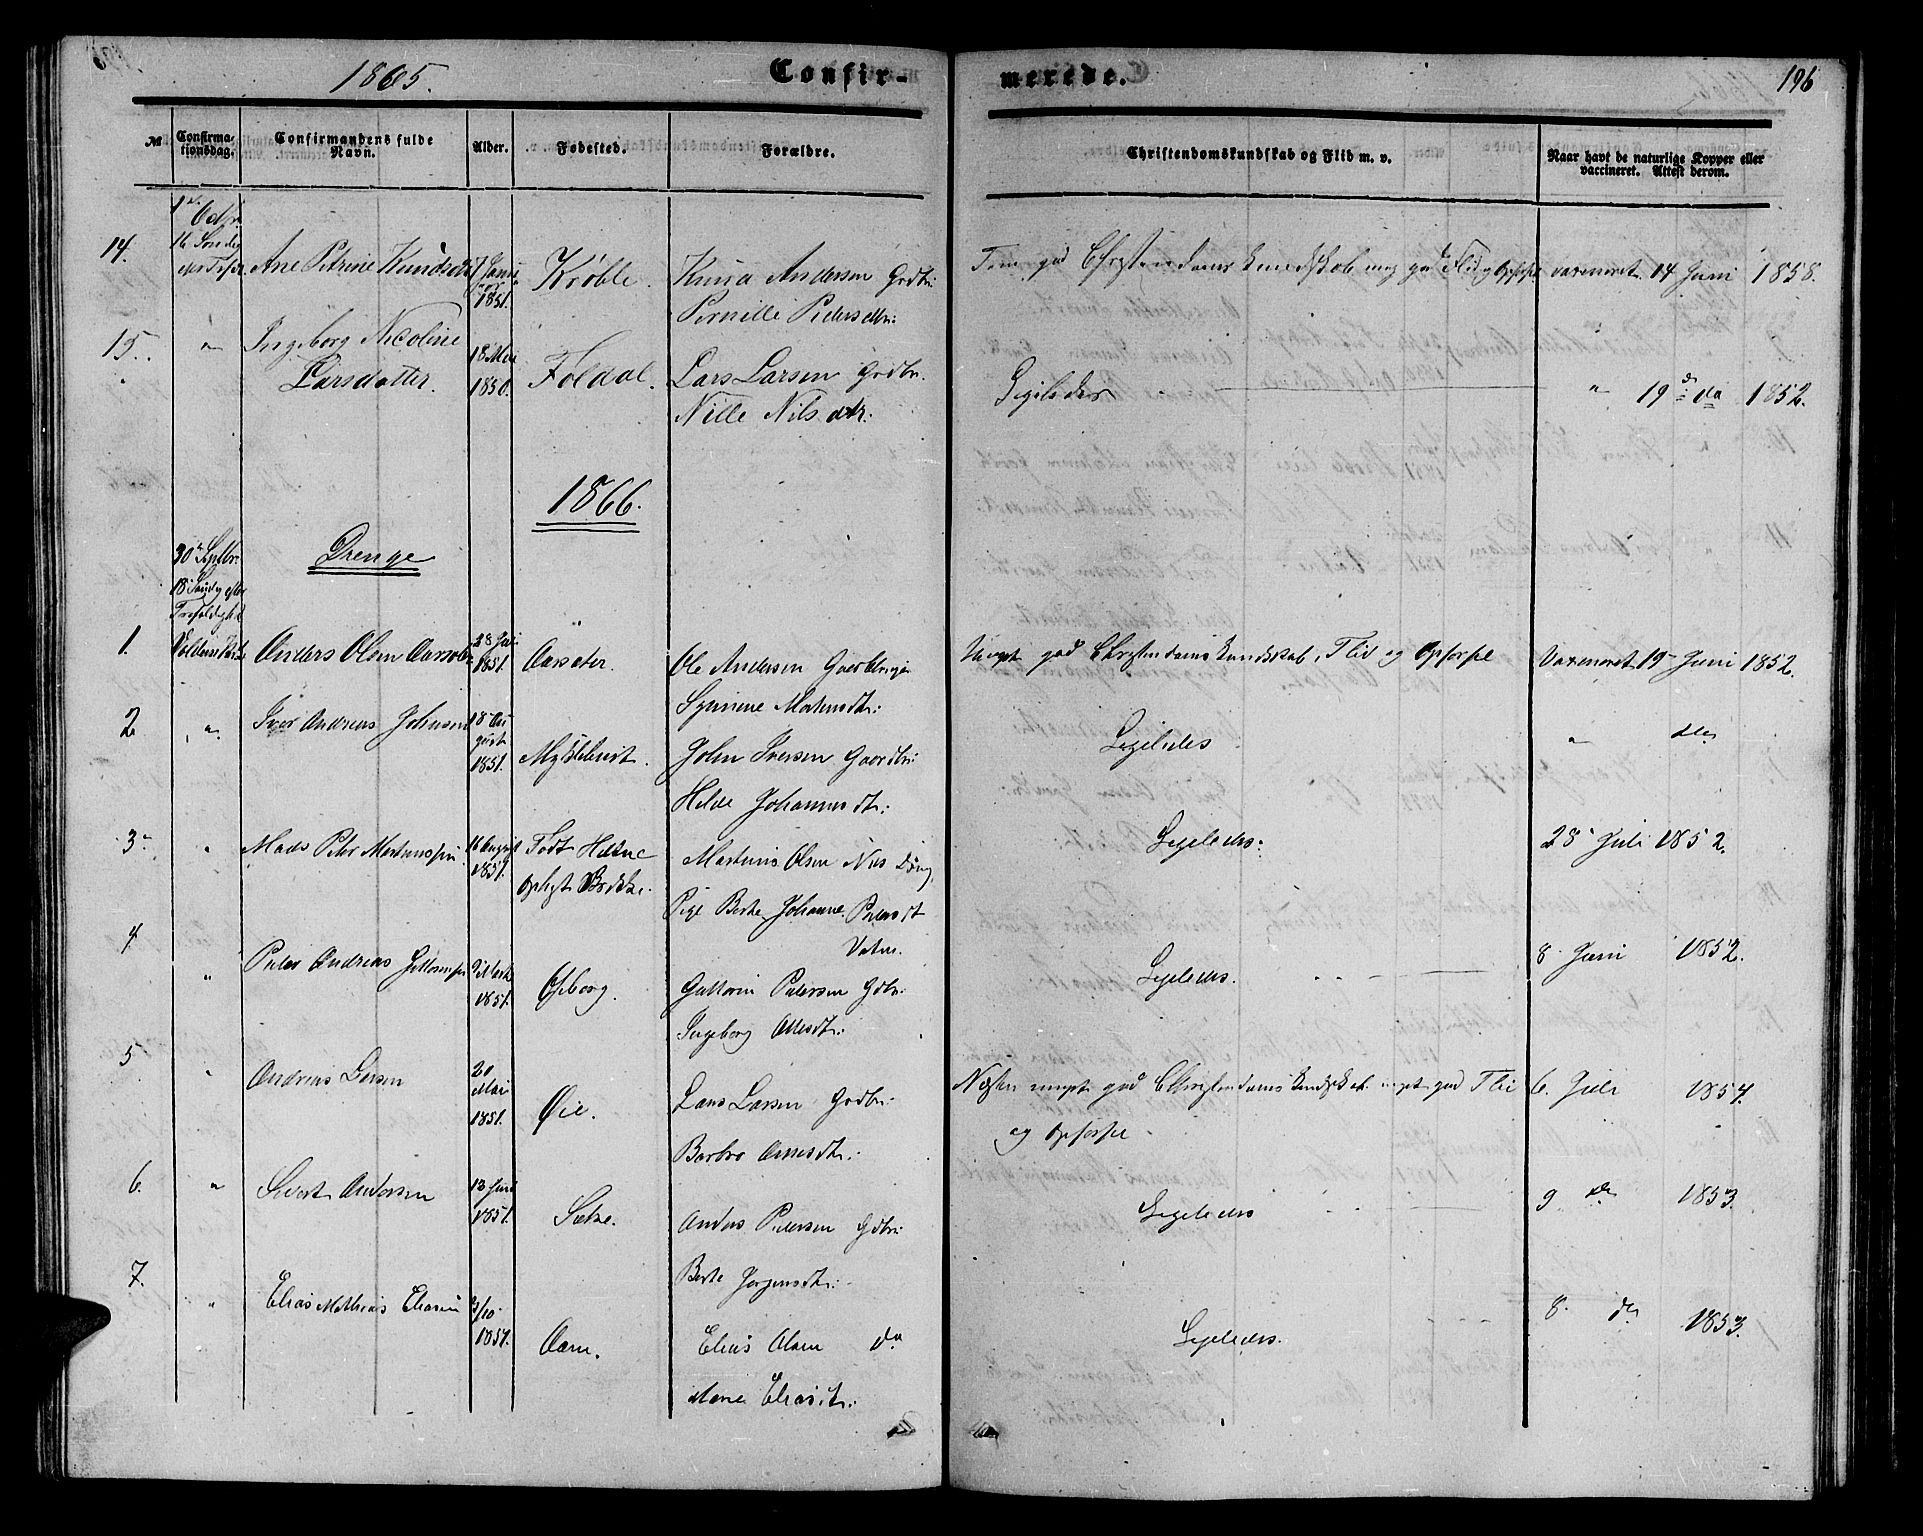 1865.
Confir-
merede.
196
№
Confirma-
tionsdag.
Confirmandens fulde
Navn.
Alder.
Fødested.
Forældre.
Christendomskundskab og Flid m. v.
Naar havt de naturlige Kopper eller
vaccineret. Attest derom.
14.
1 Octbr.
16 Søndag
Ane Petrine Knudsdtr
7 Janu
1851.
Krøble.
Knud Andersen Grdbr:
Pernille Pedersdtr:
god Christendomskundskab meg god Flid og Opførsel
vaxineret 14 Juni 1858.
15.
"
Ingeborg Nicoline
Larsdatter.
18 Mai
1850.
Foldal.
Lars Larsen Grdbr.
Nille Nilsdtr.
Ligeledes
" 19 do 1852.
1866.
Drenge
30 Septbr.
18 Søndag efter
Trefoldighed
1.
Voldens Kirke
Anders Olsen Aarseter
28 Juli
1851.
Aarseter.
Ole Andersen Gaardbruger
Martensdtr:
Meget god Christendomskundskab, Flid og Opførsel
Vaxineret 19 Juni 1852.
2
"
Iver Andreas Johnsen
18 Au
gust
1851.
Myklebust.
John Iversen Gaardbr:
Hilde Johannesdtr:
Ligeledes
" do
3
"
Mads Peter Martinussen
16 August
1851.
Født
opligt
Martinus Olsen
Pige Berte Johanne Pedersdt
Vatne.
Ligeledes.
28 Juli 1852.
4
"
Peder Andreas
Marts
1851.
Pedersen Gdbr:
Ingeborg
Ligeledes.
8 Juni 1852.
5
"
Andreas Larsen
20
Mai
1851.
Øie.
Lars Larsen Grdbr:
Barbro Arnesdtr:
Næsten meget god Christendomskundskab meget god Flid
og Opførsel
6. Juli 1854.
6.
"
Sivert Andersen
13 Juni
1851.
Sætre.
Anders Pedersen Gdbr:
Berte Jørgensdtr:
Ligeledes
9 do 1853.
7.
"
Elias Mathias Eliasen
3/10
1851.
Aam.
Elias Olsen do
Marie Eliasdtr:
Ligeledes.
8. do 1853.